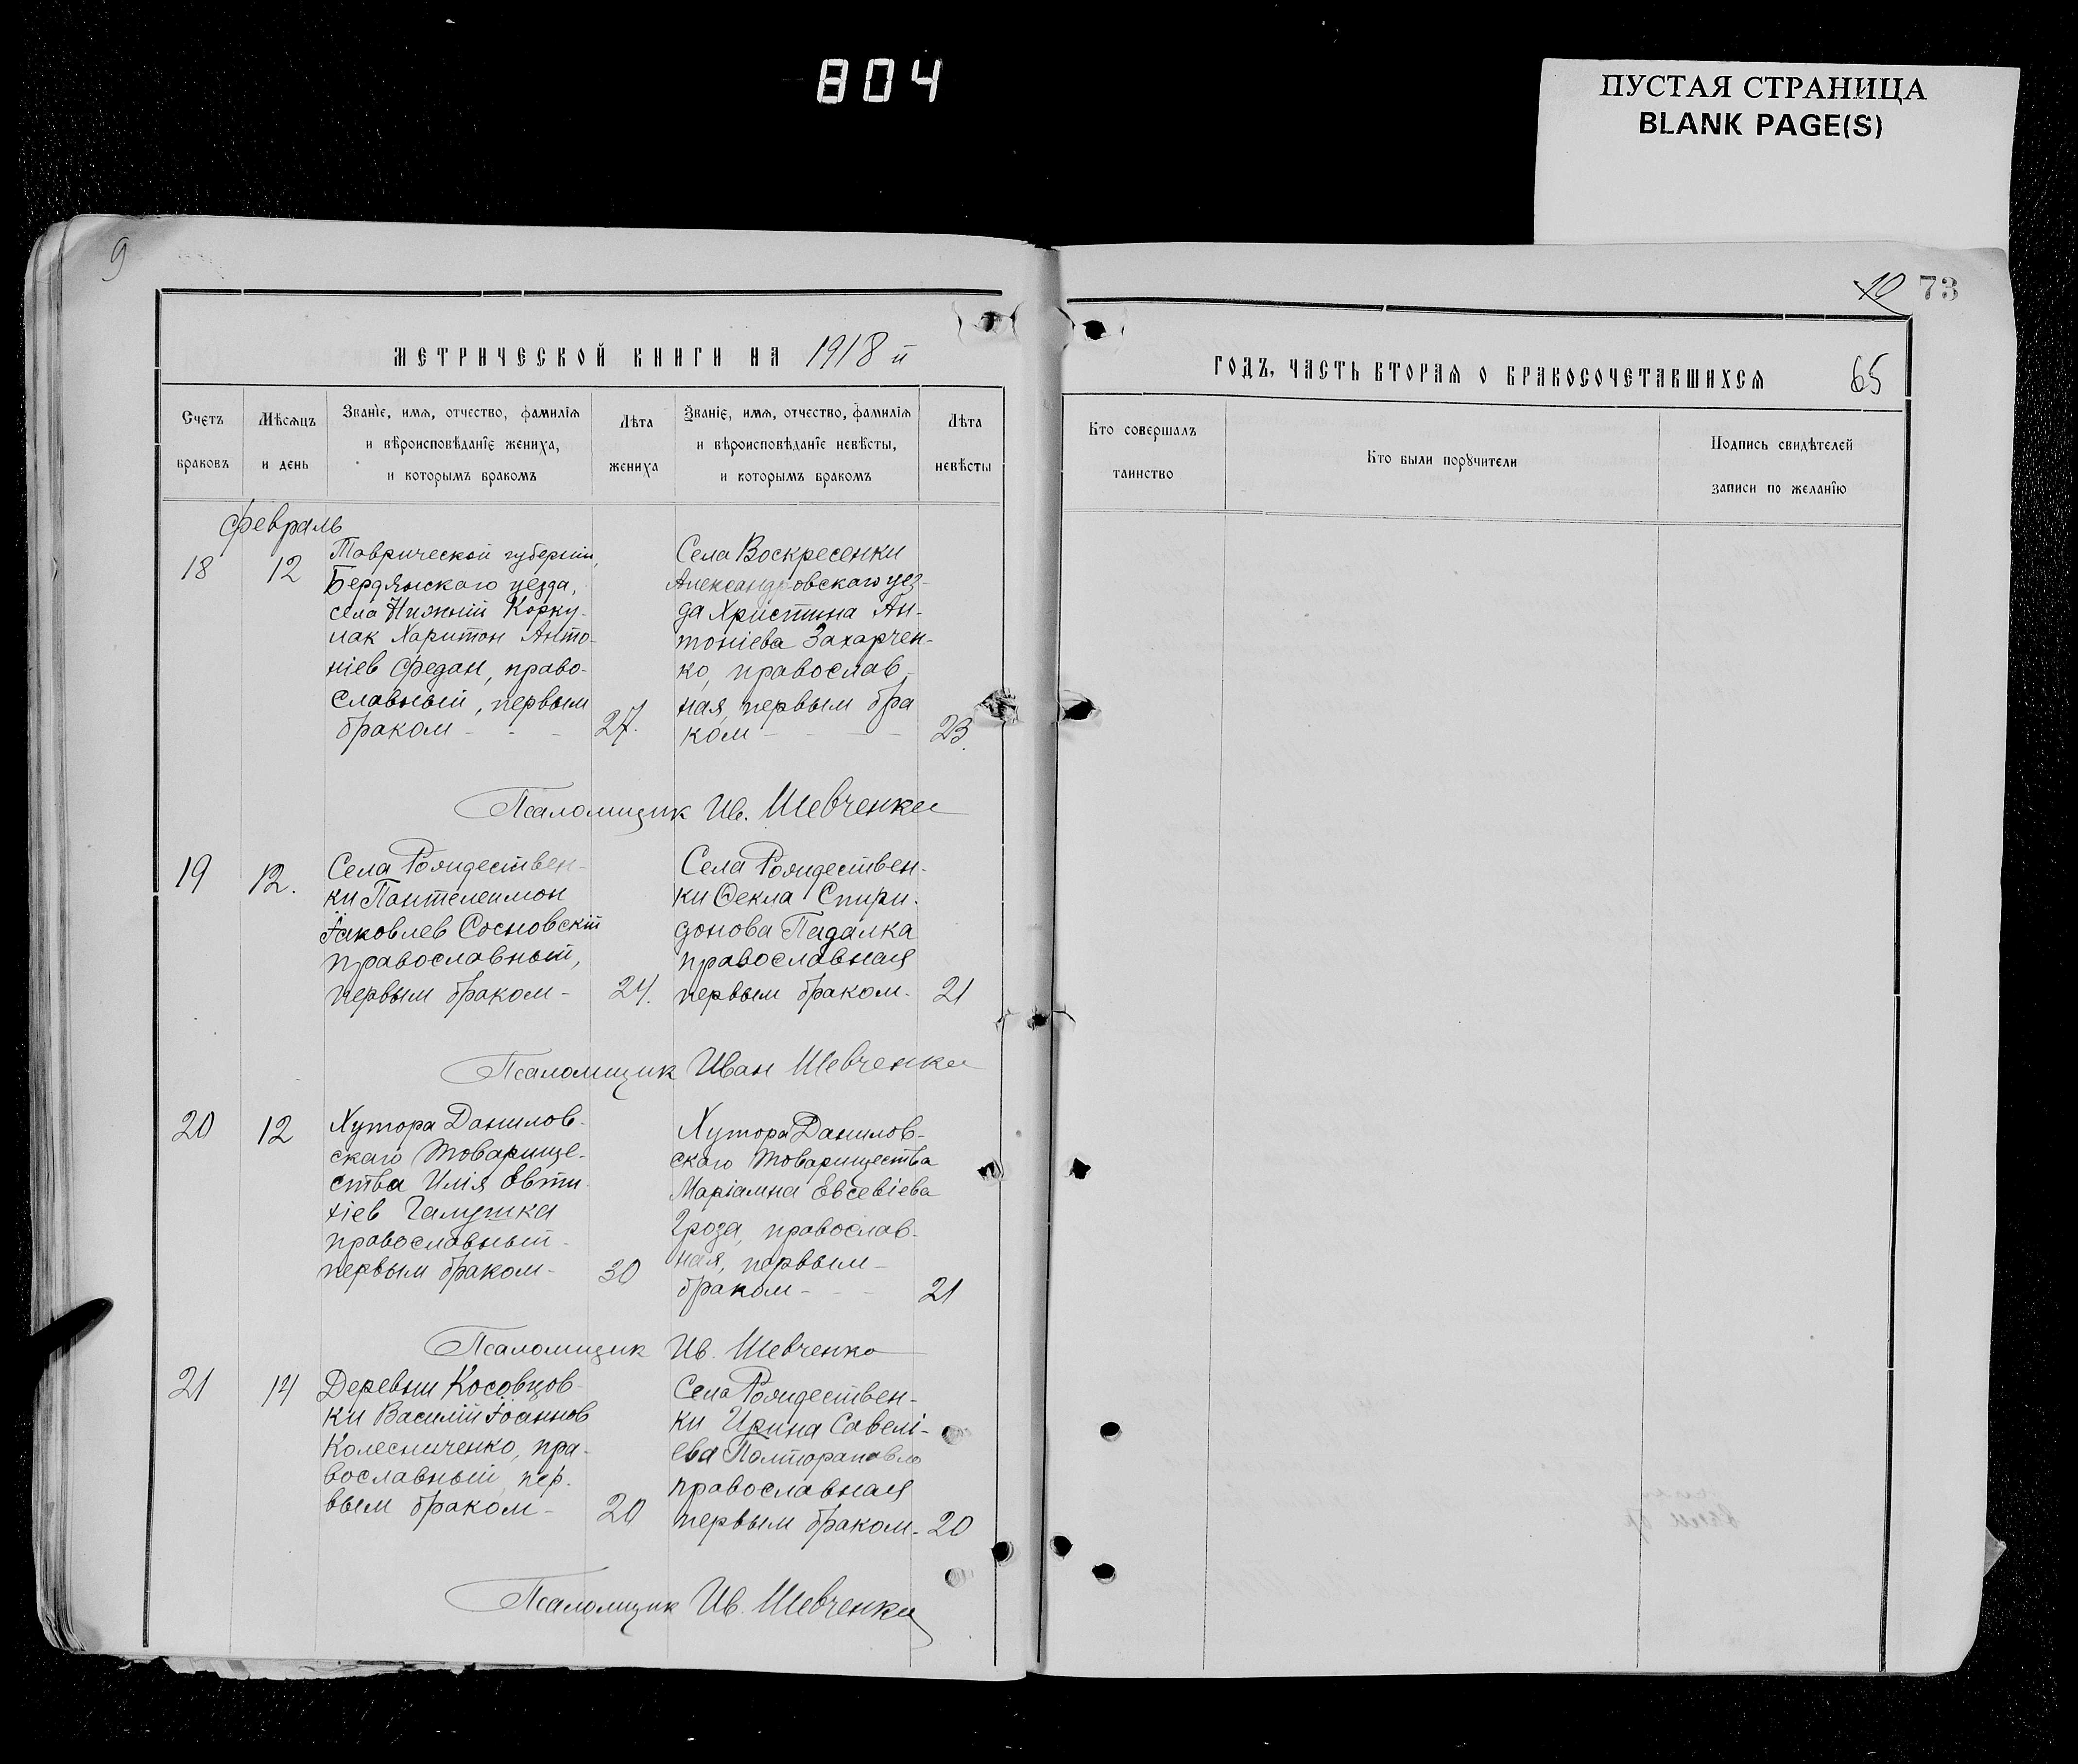 804
ПУСТАЯ СТРАНИЦА
BLANK PAGE(S)
9
МЕТРИЧЕСКОЙ КНИГИ НА 1918 й
Счетъ
браковъ
Мѣсяцъ
и день
Званіе, имя, отчество, фамилія
и вѣроисповѣданіе жениха,
и которымъ бракомъ
Лѣта
жениха
Званіе, имя, отчество, фамилія
и вѣроисповѣданіе невѣсты,
и которымъ бракомъ
Лѣта
невѣсты
февраль
18
12
Таврической губерніи,
Бердянского уезда,
села Нижний Корку-
лак Харитон Анто-
ніев Федан, право-
славный, первым
браком - - -
27.
Села Воскресенки
Александровскаго уез-
да Христина Ан-
тоніева Захарчен-
ко, православ-
ная, первым бра
ком - - - -
23.
Псаломщик Ив. Шевченко
19
12.
Села Рождествен-
ки Пантелеимон
Іаковлев Сосновскій
православный,
первым браком -
24.
Села Рождествен-
ки Ѳекла Спири-
донова Падалка
православная
первым браком.
21
Псаломщик Иван Шевченко
20
12
Хутора Данилов-
скаго Товарище-
ства Илія Евти-
хіев Галушка
православный -
первым браком -
30
Хутора Данилов-
скаго Товарищества
Маріамна Евсевіева
Гроза, православ-
ная, первым -
браком - - -
21
Псаломщик Ив. Шевченко
21
14
Деревни Косовцов-
ки Василій Іоаннов
Колесниченко, пра-
вославный, пер-
вым браком -
20
Села Рождествен-
ки Ирина Савелі-
ева
православная
первым браком -
20
Псаломщик Ив. Шевченко
10
73
ГОДЪ, ЧАСТЬ ВТОРАЯ О БРАКОСОЧЕТАВШИХСЯ
65
Кто совершалъ
таинство
Кто были поручители
Подпись свидѣтелей
записи по желанію